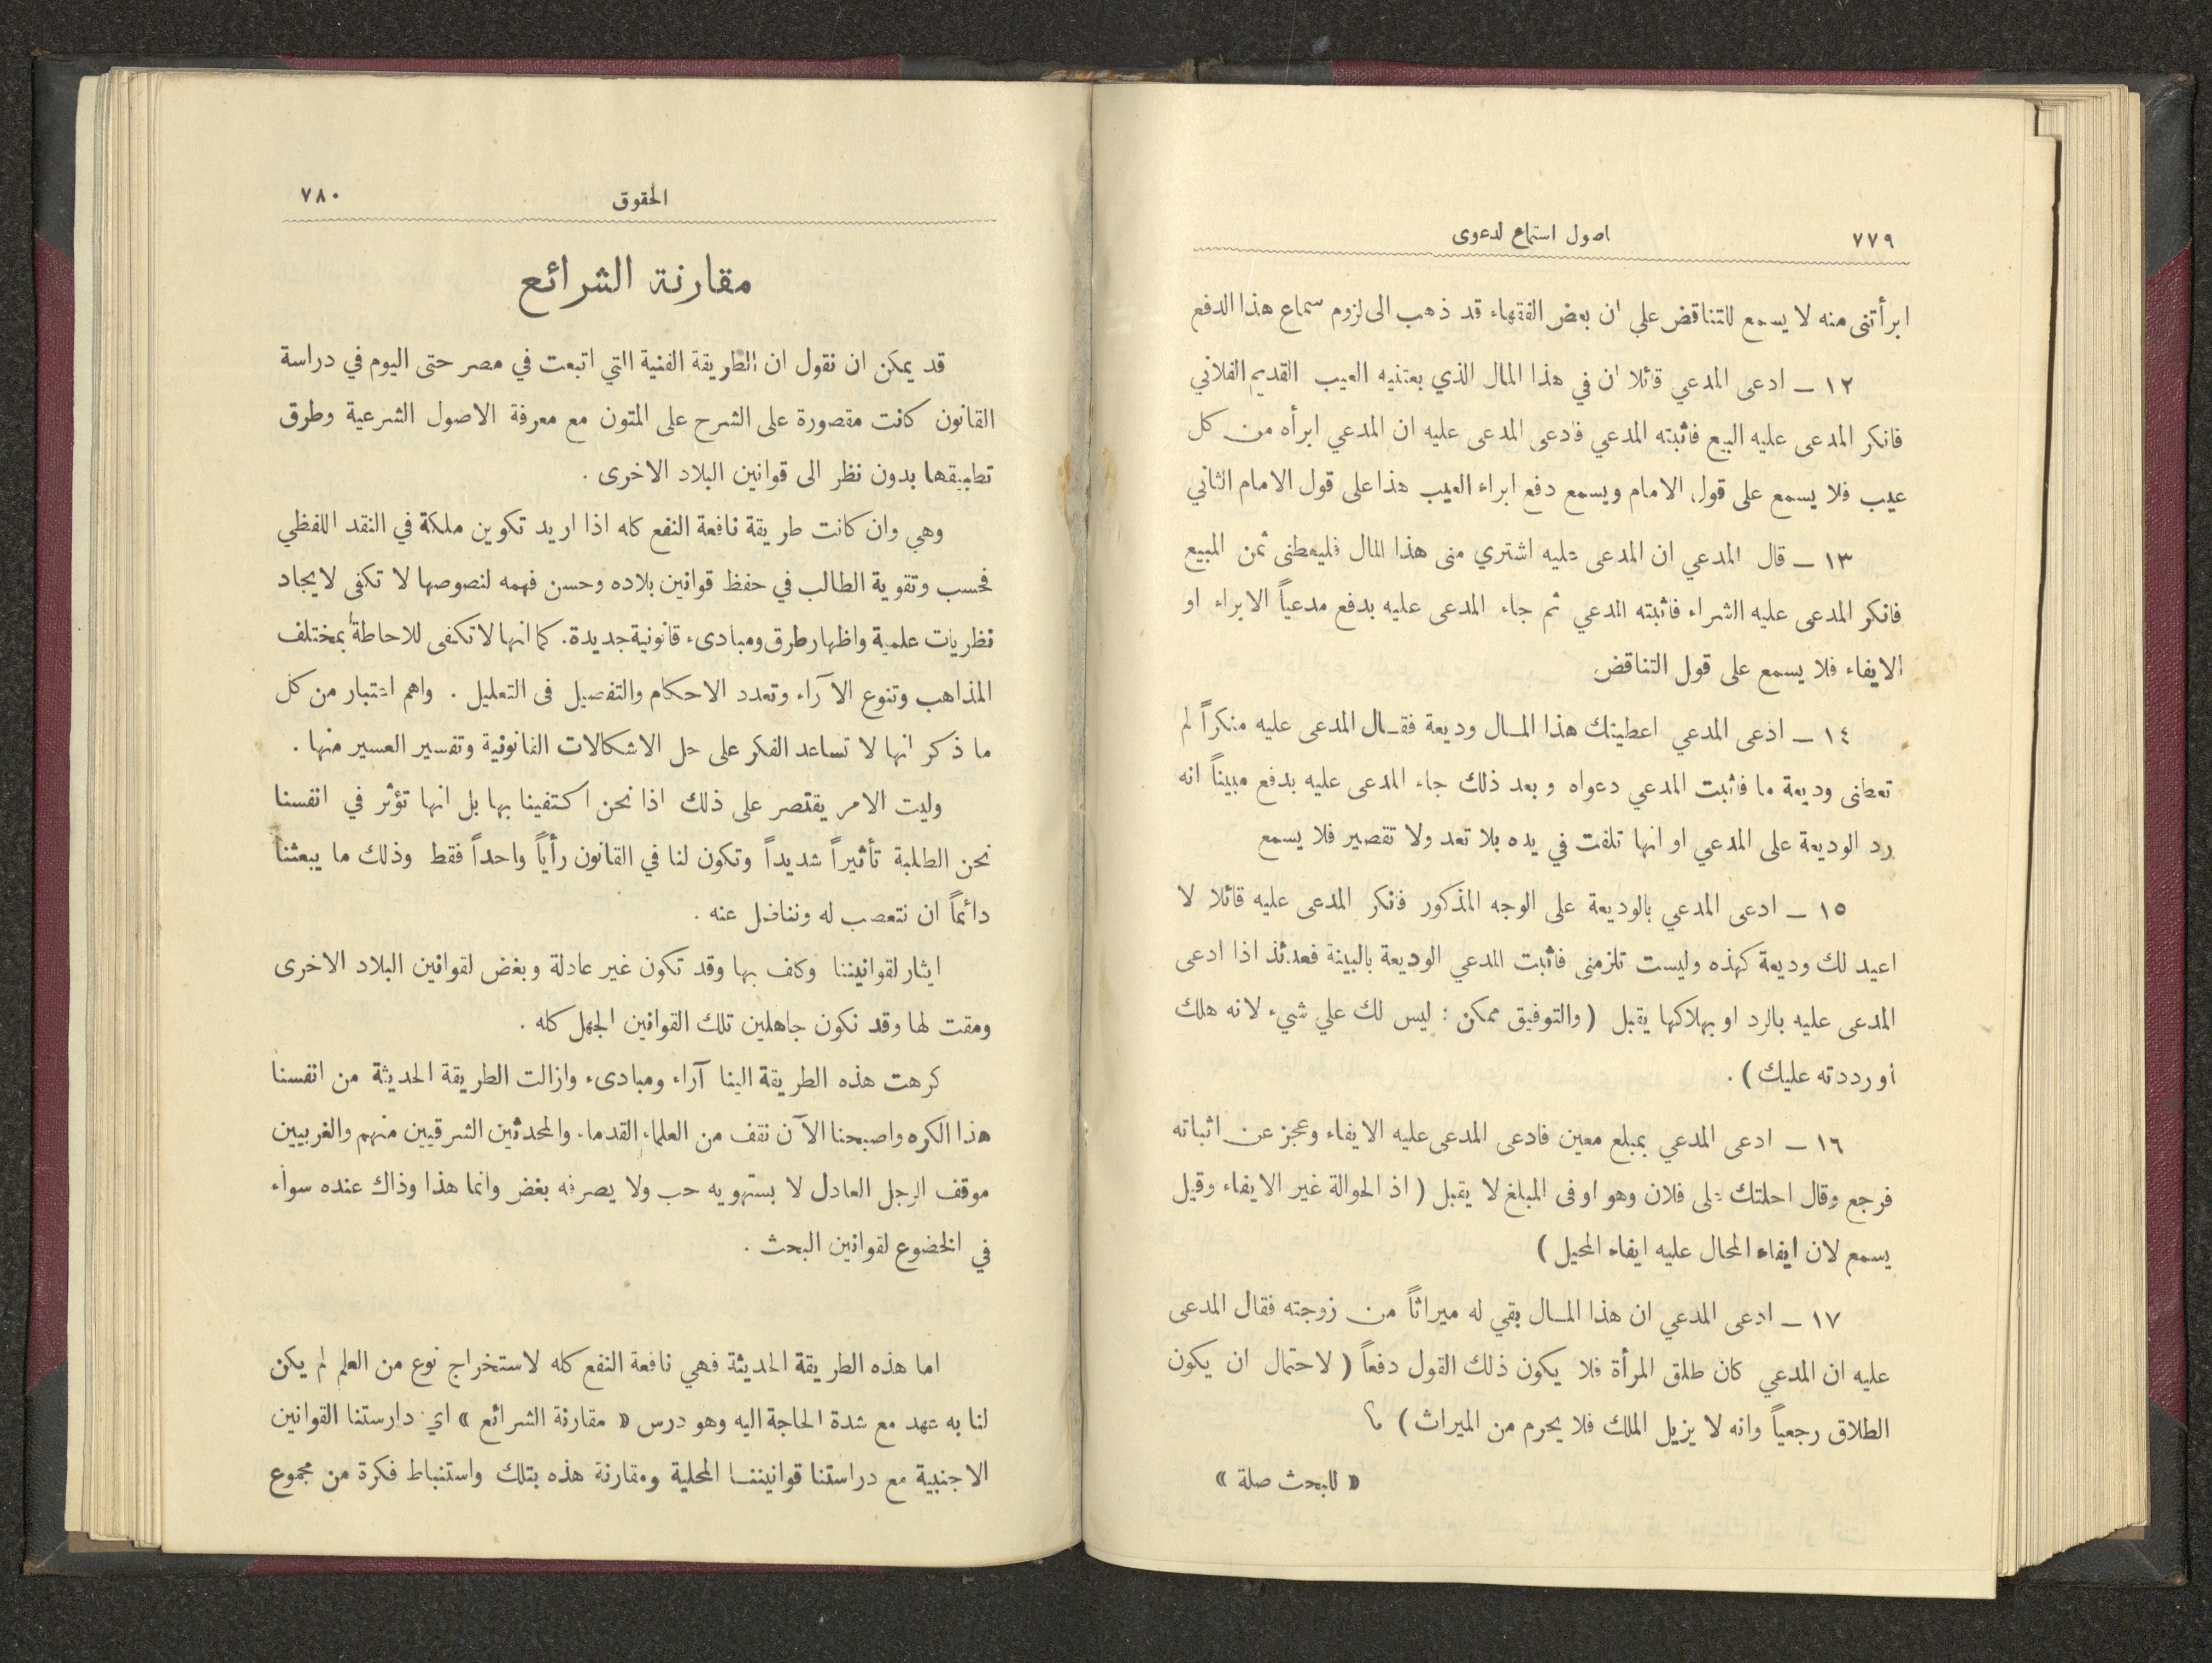 ٧٧٩ اصول استماع لدعوى
ابرأتنى منه لا يسمع للتناقض على ان بعض الفقهاء قد ذهب الى لزوم سماع هذا الدفع
١٢ – ادعى المدعي قائلا ان في هذا المال الذي بعتنيه العيب القديم الفلاني
فانكر المدعى عليه البيع فاثبته المدعي فادعى المدعى عليه ان المدعي ابرأه من كل
عيب فلا يسمع على قول الامام ويسمع دفع ابراء العيب هذا على قول الامام الثاني
١٣ – قال المدعي ان المدعى عليه اشتري منى هذا المال فليعطنى ثمن المبيع
فانكر المدعى عليه الشراء فاثبته المدعي ثم جاء المدعى عليه بدفع مدعياً الابراء او
الايفاء فلا يسمع على قول التناقض
١٤ – ادعى المدعي اعطيتك هذا المال وديعة فقال المدعى عليه منكراً لم
تعطنى وديعة ما فاثبت المدعي دعواه وبعد ذلك جاء المدعى عليه بدفع مبيناً انه
رد الوديعة على المدعي او انها تلفت في يده بلا تعد ولا تقصير فلا يسمع
١٥ – ادعى المدعي بالوديعة على الوجه المذكور فانكر المدعى عليه قائلا لا
اعيد لك وديعة كهذه وليست تلزمنى فاثبت المدعي الوديعة بالبينة فعدئذ اذا ادعى
المدعى عليه بالرد او بهلاكها يقبل ( والتوفيق ممكن : ليس لك علي شيء لانه هلك
أو رددته عليك ) .
١٦ – ادعى المدعي بمبلع معين فادعى المدعى عليه الايفاء وعجز عن اثباته
فرجع وقال احلتك على فلان وهو اوفى المبلغ لا يقبل ( اذ الحوالة غير الايفاء وقيل
يسمع لان ايفاء المحال عليه ايفاء المحيل )
١٧ – ادعى المدعي ان هذا المال بقي له ميراثاً من زوجته فقال المدعى
عليه ان المدعي كان طلق المرأة فلا يكون ذلك القول دفعاً ( لاحتمال ان يكون
الطلاق رجعياً وانه لا يزيل الملك فلا يحرم من الميراث )
« للبحث صلة »
الحقوق ٧٨٠
مقارنة الشرائع
قد يمكن ان نقول ان الطريقة الفنية التي اتبعت في مصر حتى اليوم في دراسة
القانون كانت مقصورة على الشرح على المتون مع معرفة الاصول الشرعية وطرق
تطبيقها بدون نظر الى قوانين البلاد الاخرى .
وهي وان كانت طريقة نافعة النفع كله اذا اريد تكوين ملكة في النقد اللفظي
فحسب وتقوية الطالب في حفظ قوانين بلاده وحسن فهمه لنصوصها لا تكفى لايجاد
نظريات علمية واظهار طرق ومبادىء قانونية جديدة . كما انها لا تكفى للاحاطة بمختلف
المذاهب وتنوع الآراء وتعدد الاحكام والتفصيل فى التعليل . واهم اعتبار من كل
ما ذكر انها لا تساعد الفكر على حل الاشكالات القانونية وتفسير العسير منها .
وليت الامر يقتصر على ذلك اذا نحن اكتفينا بها بل انها تؤثر في انفسنا
نحن الطلبة تأثيراً شديداً وتكون لنا في القانون رأياً واحداً فقط وذلك ما يبعثنا
دائماً ان نتعصب له ونناضل عنه .
ايثار لقوانيننا وكلف بها وقد تكون غير عادلة وبغض لقوانين البلاد الاخرى
ومقت لها وقد نكون جاهلين تلك القوانين الجهل كله .
كرهت هذه الطريقة الينا آراء ومبادىء وازالت الطريقة الحديثة من انفسنا
هذا الكره واصبحنا الآن نقف من العلماء القدماء والمحدثين الشرقيين منهم والغربيين
موقف الرجل العادل لا يستهويه حب ولا يصرفه بغض وانما هذا وذاك عنده سواء
في الخضوع لقوانين البحث .
اما هذه الطريقة الحديثة فهي نافعة النفع كله لاستخراج نوع من العلم لم يكن
لنا به عهد مع شدة الحاجة اليه وهو درس « مقارنة الشرائع » اي دارستنا القوانين
الاجنبية مع دراستنا قوانيننا المحلية ومقارنة هذه بتلك واستنباط فكرة من مجموع